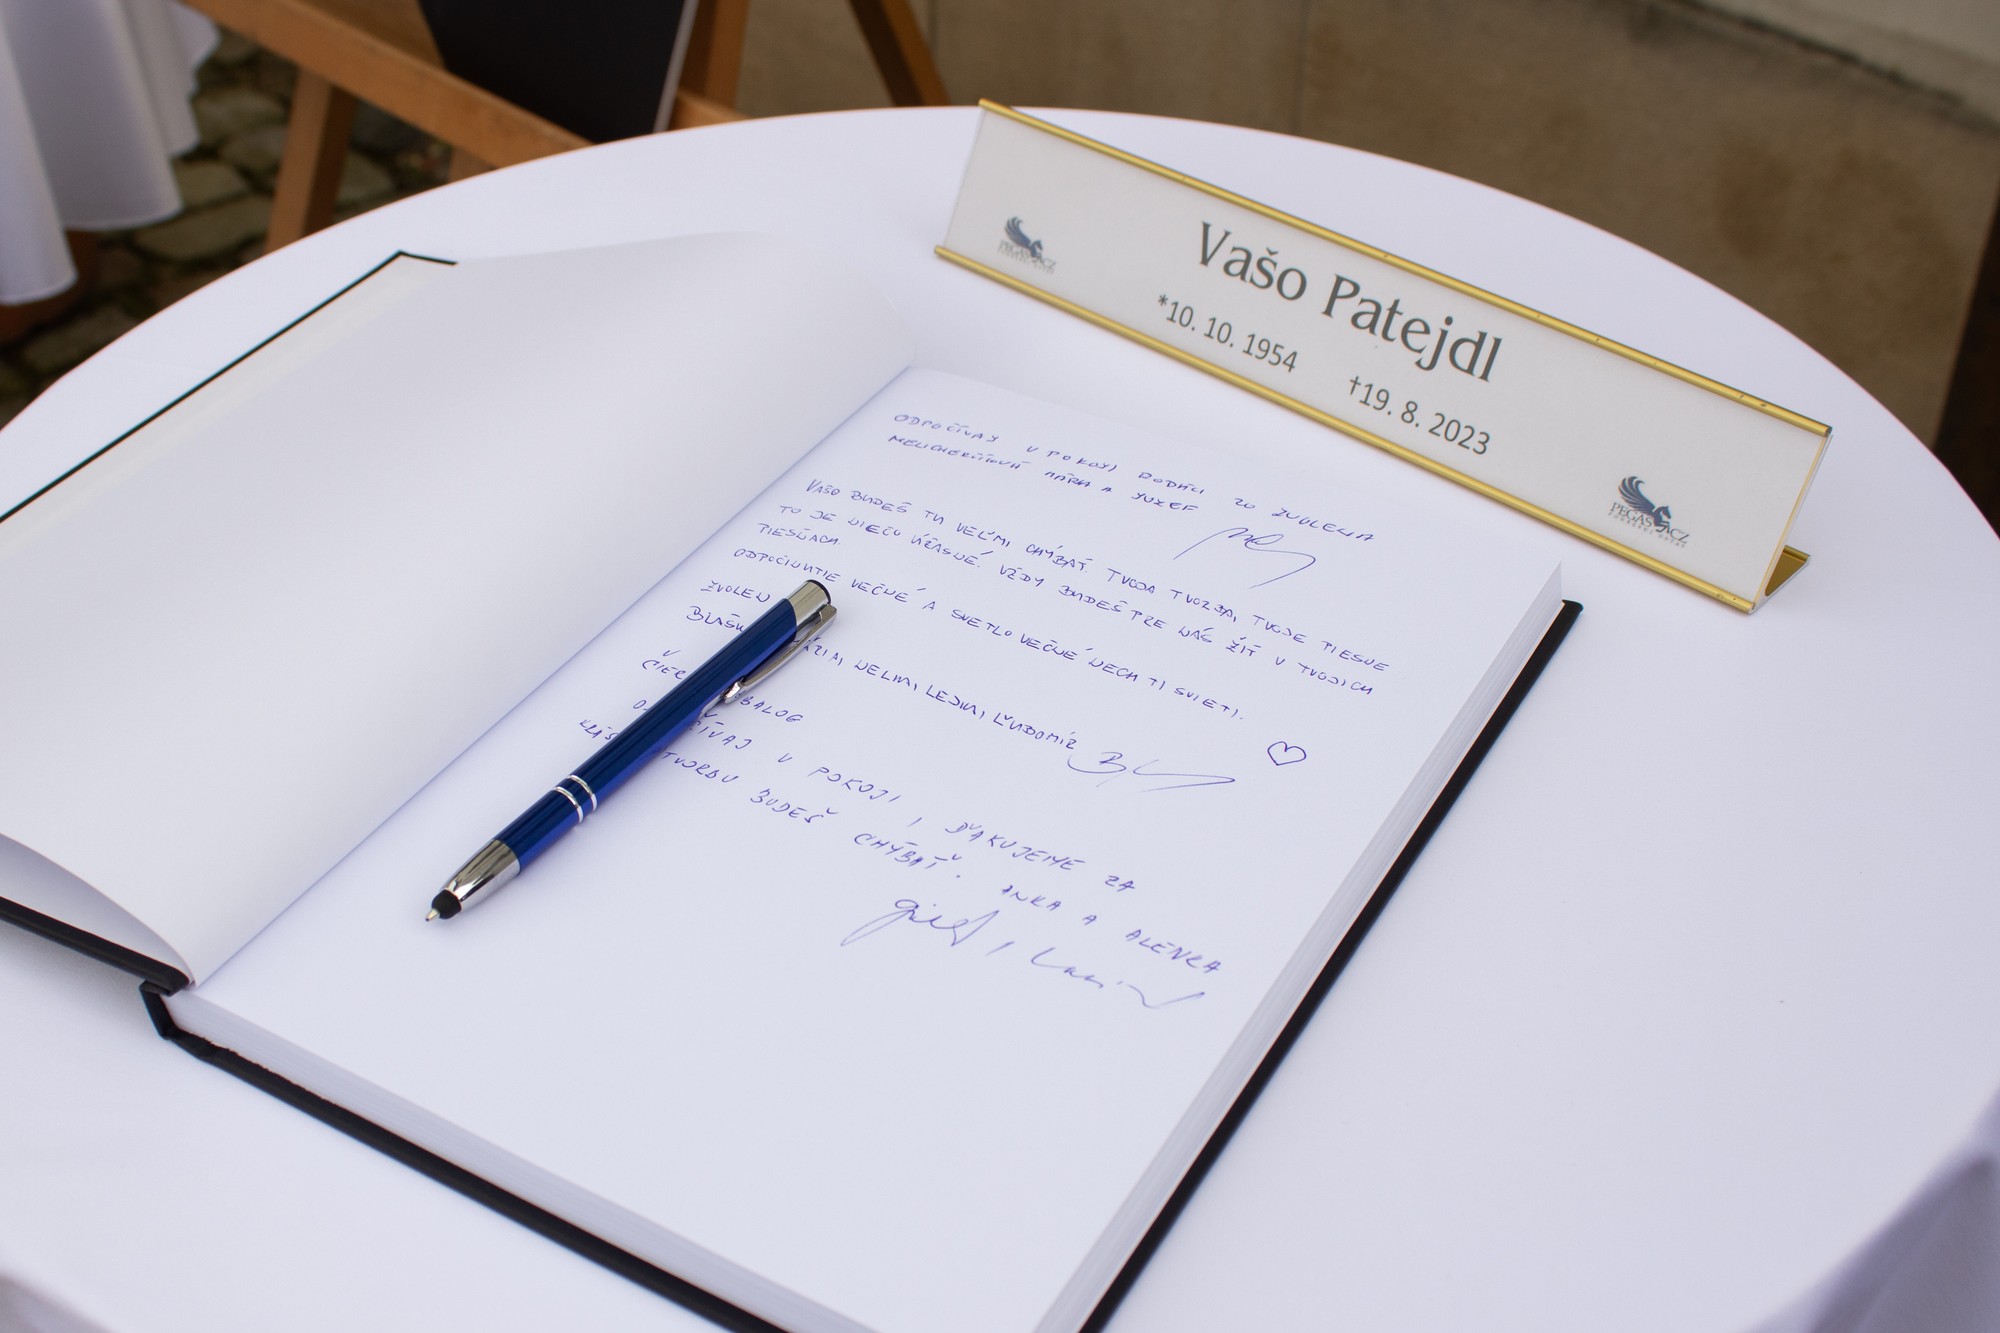 PEGAS.CZ
Vašo Patejdl
*10. 10. 1954 †19. 8. 2023
PEGAS.CZ
ODPOČÍVAJ V POKOJI RODÁCI ZO ZVOLENA
MÁRIA A JOZEF
VAŠO BUDEŠ TU VEĽMI CHÝBAŤ. TVOJA TVORBA, TVOJE PIESNE
TO JE NIEČO ÚŽASNÉ. VŽDY BUDEŠ PRE NÁS ŽIŤ V TVOJICH
PIESŇACH.
ODPOČINUTIE VEČNÉ A SVETLO VEČNÉ NECH TI SVIETI.
ZVOLEN
NELMI, LEJKI, ĽUBOMÍR
V
BALOG
ČÍVAJ V POKOJI, ĎAKUJEME ZA
TVORBU BUDEŠ CHÝBAŤ. INKA A ALENKA